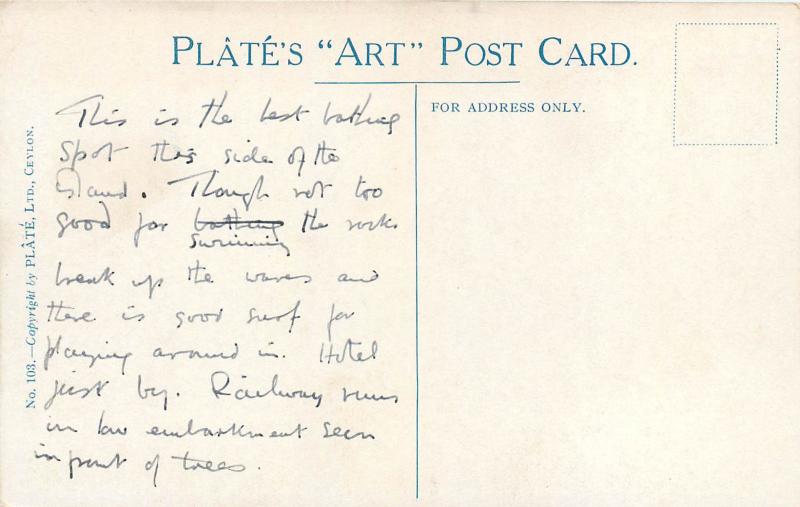 PLÂTÉ'S "ART" POST CARD.
FOR ADDRESS ONLY.
No. 103.—Copyright by PLÂTÉ, LTD., CEYLON.
This is the best bathing
spot this side of the
island. Though not too
good for bathing the rocks
swimming
break up the waves and
there is good surf for
playing around in. Hotel
just by. Railway runs
in low embankment seen
in front of trees.